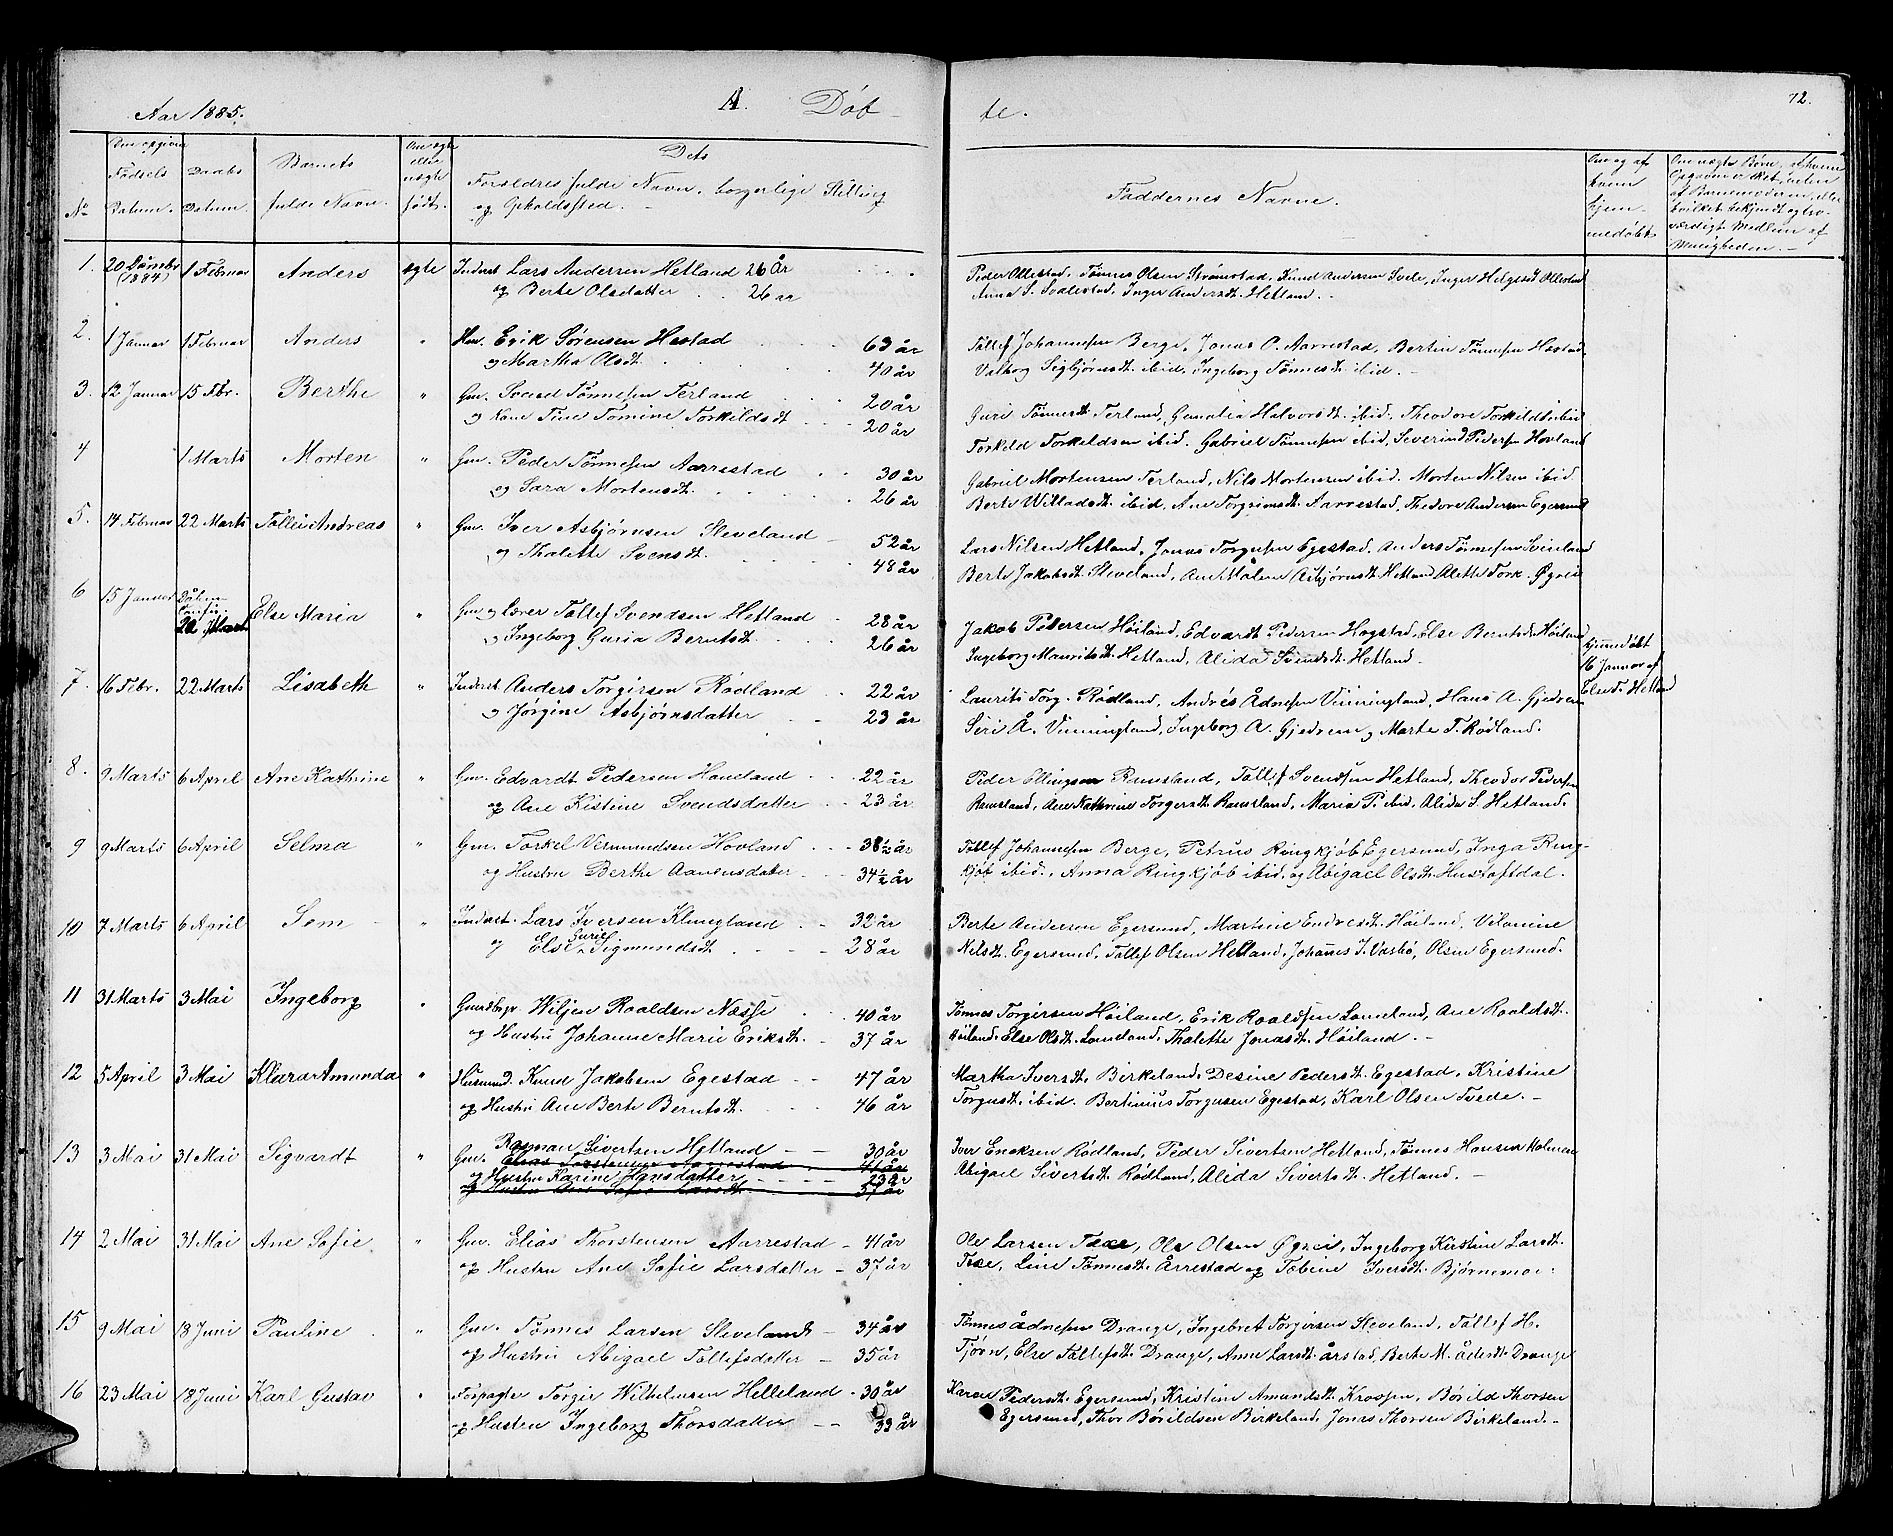 Aar 1885.
A. Døb
te.
72.
No
Den opgivne Fødsels Datum.
Daabs Datum.
Barnets fulde Navn.
Om egte eller uegte født.
Dets Forældres fulde Navn, borgerlige Stilling og Opholdssted.
Faddernes Navne.
Om og af hvem hjemmedøbt
Om uegte Børn, af hvem
1. 20 Dcmbr (1884) 1 Februar Anders egte Inderst Lars Andersen Hetland 26 År
og Berte Olsdatter 26 aar
Peder Ollestad, Tønnes Olsen Strømstad, Knud Andersen Svele, Inger Helgesdt Ollestad
Anna S. Svalestad, Inger Andersdt. Hetland.
2. 1 Januar 1 Februar Anders " Hm. Erik Sørensen Hestad 63 år
og Martha Olsdt. 40 år
Tollef Johannesen Berge, Jonas O. Aarrestad, Bertin Tønnesen Hestad,
Valborg Sigbjørnsdt. ibid, Ingeborg Tønnesdt ibid.
3. 12 Januar 15 Fbr. Berthe " Gm. Svend Tønnesen Terland 20 år
og Kone Tine Tomine Torkildsdt 20 år
Guri Tønnesdt Terland, Halvorsdt. ibid, Theodore Torkildsdt ibid
Torkild Torkildsen ibid. Gabriel Tønnesen ibid, Severin Pedersen Hovland
4 1 Marts Morten " Gm. Peder Tønnesen Aarrestad 30 år
og Sara Mortensdt. 26 år
Gabriel Mortensen Terland, Nils Mortensen ibid. Morten Nilsen ibid.
Berte Willadsdt ibid, Ane Torgrimsdt. Aarrestad, Thedore Andersen Egersund
5. 14. Februar 22 Marts Tolleis Andreas " Gm. Iver Asbjørnsen Sleveland 52 år
og Thalette Svensdt. 48 år
Lars Nilsen Hetland, Jonas Torgersen Egestad, Anders Tønnesen Sviuland
Berte Jakobsdt. Sleveland, Ane Målene Asbjørnsdt. Hetland Alette Tork. Øgreie
6 15 Januar 22 Mart. Else Maria " Gm og Lærer Tollef Svendsen Hetland 28 år
og Ingeborg Guria Berntsdt. 26 år
Jakob Pedersen Høiland, Edvardt Pedersen Hogstad, Else Berntsdt. Høiland
Ingeborg Mauritsdt. Hetland, Alida Svendsdt. Hetland.
hjemmedøbt
16 Januar af
Else T. Hetland
7. 16 Febr. 22 Marts Lisabeth " Inderst. Anders Torgirsen Rødland 22 år
og Jørgine Asbjørnsdatter 23 år
Laurits Torg. Rødland, Andrés Ådnesen Vinningland, Hans A. Gjedrem
Siri Å. Vinningland, Ingeborg A. Gjedrem og Marte T. Rødland.
8. 9 Marts 6 April Ane Kathrine " Gm. Edvardt Pedersen Haneland 22 år
og Ane Kistine Svendsdatter 23 år
Peder Ellingsen Ramsland, Tollef Svendsen Hetland, Theodor Pedersen
Ramsland, Ane Kathrine Torgersdt. Ramsland, Maria P. ibid, Alida S. Hetland.
9 9 Marts 6 April Selma " Gm. Torkel Vermundsen Hovland 38½ år
og Hustru Berthe Aanensdatter 34½ år
Tollef Johannesen Berge, Petrus Ringkjøb Egersund, Inga Ring-
kjøb ibid., Anna Ringkjøb ibid. og Abigael Olsdt. Hustoftdal.
10 7 Marts 6 April Sem " Inderst. Lars Iversen Klungland 32 år
og Else Gurie Sigmundsdt 28 år
Berte Anderson Egersund, Martine Endresdt. Høiland, Vilamine
Nilsdt. Egersund, Tollef Olsen Hetland, Johanes J. Vasbø, Olsen Egersund.
11 31 Marts 3 Mai Ingeborg " Gaardbgr Wiljen Roaldsen Næsse 40 år
og Hustru Johanne Marie Eriksdt. 37 år
Tønnes Torgirsen Høiland, Erik Roaldsen Lomeland, Ane Roaldsdt.
Høiland, Else Olsdt. Lomeland, Thalette Jonasdt. Høiland.
12 5 April 3 Mai Klara Amanda " Husmand. Knud Jakobsen Egestad 47 år
og Hustru Ane Berte Berntsdt. 46 år
Martha Iversdt. Birkeland, Desine Pedersdt. Egestad, Kristine
Torgersdt. ibid. Bertinius Torgersen Egestad, Karl Olsen Tvede.
13 3 Mai 31 Mai Sigvardt " Gm. Rasman Sivertsen Hetland 30 år
Elias Torstensen Aarrestad 41 år
og Hustru Karine Hansdatter 23 år
og Hustru Ane Sofie Larsdt. 37 år
Iver Enoksen Rødland, Peder Sivertsen Hetland, Tønnes Hansen Holmen
Abigael Sivertsdt. Rødland, Alida Sivertsdt. Hetland.
14 2 Mai 31 Mai Ane Sofie " Gm. Elias Thorstensen Aarrestad 41 år
og Hustru Ane Sofie Larsdatter 37 år
Ole Larsen Texe, Ole Olsen Øgrei, Ingeborg Kirstine Larsdt.
Texe, Line Tønnesdt. Årrestad og Tobine Iversdt. Bjørnemoe.
15 9 Mai 18 Juni Pauline " Gm. Tønnes Larsen Slevelandt 34 år
og Hustru Abigael Tollefsdatter 35 år
Tønnes Ådnesen Drange, Ingebret Torgirsen Sleveland, Tollef H.
Tjørn, Else Tollefsdt. Drange, Anne Larsdt. Årstad, Berte M. Ådesdt. Drange
16 23 Mai 18 Juni Karl Gustav " Forpagter Torgir Wilhelmsen Helleland 30 år
og Hustru Ingeborg Thorsdatter 33 år
Karen Pedersdt. Egersund, Kristine Amundsdt. Krossen, Børild Thorsen
Egersund, Thor Børildsen Birkeland, Jonas Thorsen Birkeland.